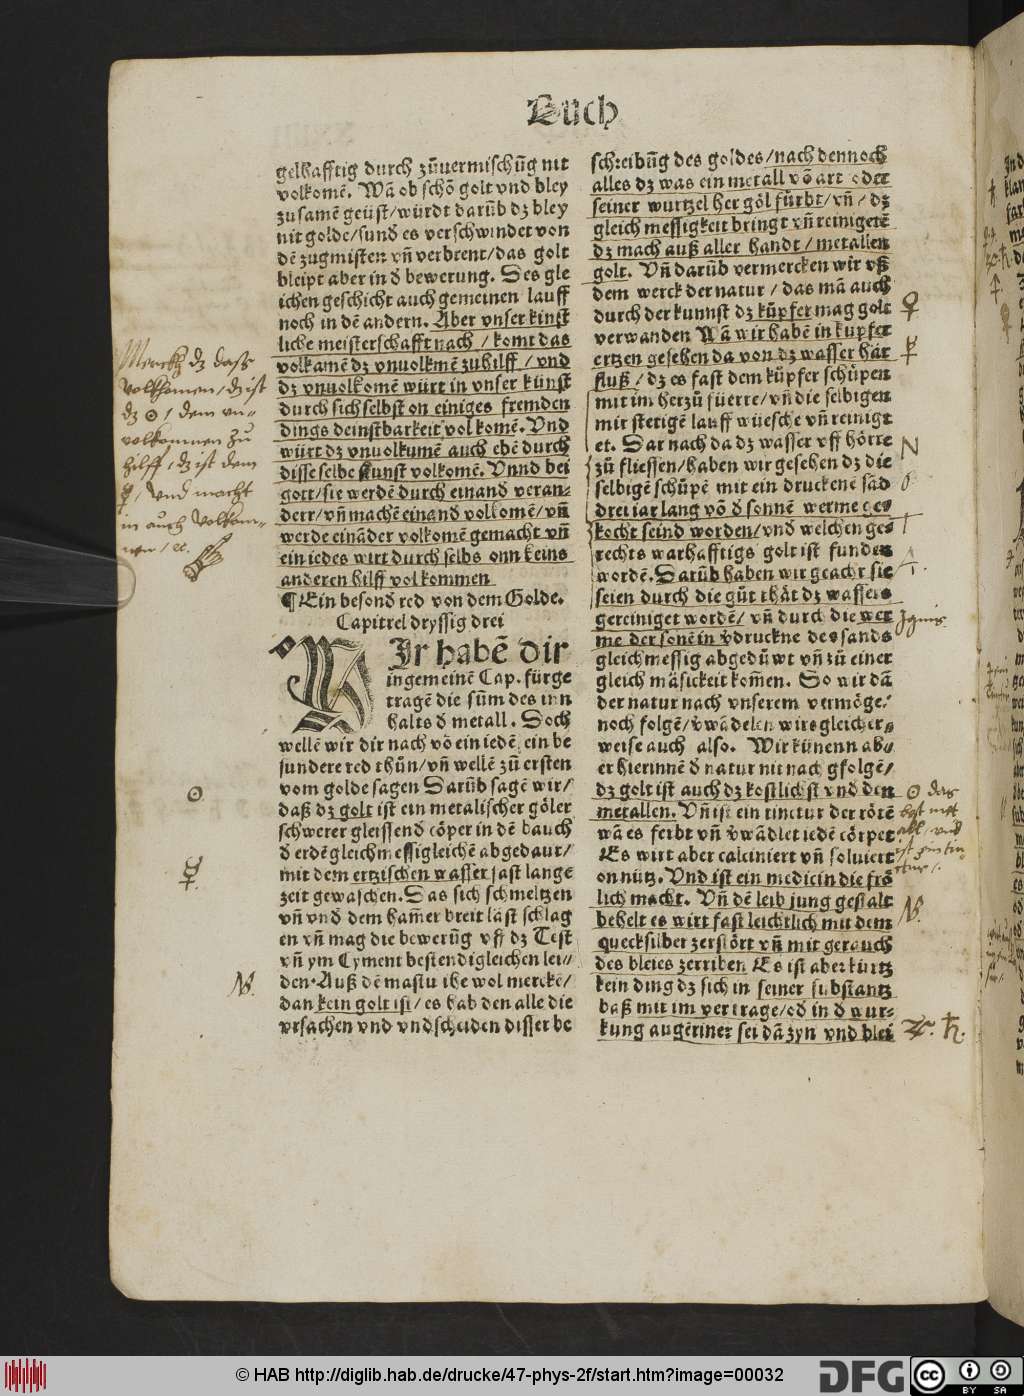 Buch
gelhafftig durch zůuermischũg nit
volkomẽ. Wã ob schõ golt vnd bley
zusamẽ geüst/würdt darũb dz bley
nit golde/sund es verschwindet von
dẽ zugmisten vñ verbrent/das golt
bleipt aber in d bewerung. Des gle
ichen geschicht auch gemeinen lauff
noch in dẽ andern. Aber vnser kunst
liche meisterschafft nach / komt das
volkamẽ dz vnuolkmẽ zuhilff / vnd
dz vnuolkomẽ würt in vnser künst
durch sich selbst on einiges fremden
dings deinstbarkeit volkomẽ. Vnd
würt dz vnuolkumẽ auch ebẽ durch
disse selbe kunst volkomẽ. Vnnd bei
gott/sie werdẽ durch einand veran-
derr/vñ machẽ einand volkomẽ/vñ
werde einãder volkomẽ gemacht vñ
ein iedes wirt durch selbs onn keins
anderen hilff volkommen
¶ Ein besond red von dem Golde.
Capittel dryssig drei
WIr habẽ dir
in gemeinẽ Cap. fürge
tragẽ die sũm des inn
halts d metall. Doch
wellẽ wir dir nach võ ein iedẽ ein be
sundere red thůn/vñ wellẽ zů ersten
vom golde sagen Darũb sagẽ wir/
daß dz golt ist ein metalischer göler
schwerer gleissend cöper in dẽ bauch
d erdẽ gleichmessigleichẽ abgedaut/
mit dem ertzischen wasser fast lange
zeit gewaschen. Das sich schmeltzen
vñ vnd dem ham̃er breit läst schlag
en vñ mag die bewerũg vff dz Test
vñ ym Cyment bestendigleichen lei-
den. Auß dẽ mastu ihe wol merckẽ/
dan kein golt ist/es hab den alle die
vrsachen vnd vndscheiden disser be
schreibũg des goldes/nach dennoch
alles dz was ein metall võ art oder
seiner wurtzel her göl fürbt/vñ/dz
gleich messigkeit bringt vñ reinigetẽ
dz mach auß aller handt/metallen
golt. Vñ darüb vermercken wir vß
dem werck der natur / das mã auch
durch der kunnst dz küpfer mag golt
verwanden Wã wir habẽ in kupfer
ertzen gesehen da von dz wasser här
fluß/dz es fast dem küpfer schüpen
mit im herzü füerre/vñ die selbigen
mir sterigẽ lauff wüesche vñ reinigt
et. Dar nach da dz wasser vff hörre
zů fliessen/haben wir gesehen dz die
selbigẽ schüpẽ mit ein druckenẽ sãd
drei iar lang võ d sonnẽ werme ges
kocht seind worden/vnd welchen ges
rechts warhafftigs golt ist funden
wordẽ. Darüb haben wir geacht sie
seien durch die güt thät dz wassers
gereiniget wordẽ/ vñ durch die wer
me der sonẽ in vdruckne des sands
gleichmessig abgedüwt vñ zü einer
gleich mäsickeit kom̃en. So wir dã
der natur nach vnserem vermöge/
noch folgẽ/vwãdelen wirs gleicher-
weise auch also. Wir künenn ab-
er hierinnẽ d natur nit nach gfolgẽ/
dz golt ist auch dz kostlichst vnd den
metallen. Vñ ist ein tinctur der rötẽ
wã es feibt vñ vwãdlet iedẽ cörpet
Es wirt aber calciniert vñ soluiert
on nütz. Vnd ist ein medicin die frö
lich macht. Vñ dẽ leib jung gestalt
behelt es wirt fast leichtlich mit dem
quecksilber zerstört vñ mit gerauch
des bleies zerriben Es ist aber kürtz
kein ding dz sich in seiner substantz
baß mit im vertrage/od in d wur-
kung augẽriner sei dã zyn vnd blei
Merckh dz dasz
Volkhomen, dz ist
dz ☉, dem vn-
volkommen zu
hilff, dz ist dem
☿, Vnd macht
in auch Volkom-
men, etc.
☉
☿.
NB.
♀
☿
Ignis.
☉ das
best met
all, vnd
ist ein tin-
ctur.
NB.
♃. ♄.
© HAB http://diglib.hab.de/drucke/47-phys-2f/start.htm?image=00032
DFG
cc
BY SA